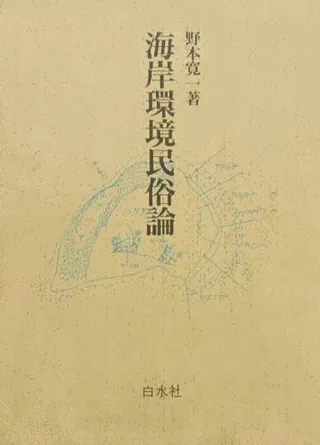 野本寛一著
海岸環境民俗論
白水社